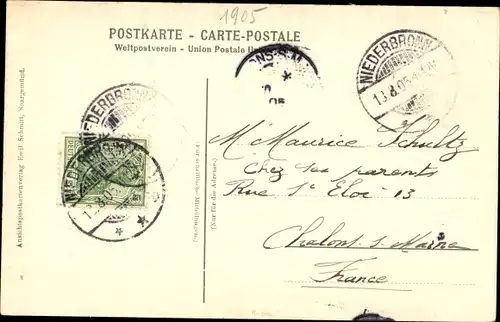 1905
POSTKARTE - CARTE-POSTALE
Weltpostverein - Union Postale
NIEDERBRONN
13.8.05
NIEDERBRONN
NIEDERBRONN
13.8.05
Mr Maurice Schultz
chez ses parents
Rue St Eloi 13
Chalons s. Marne
France
(Nur für die Adresse.)
Ansichtspostkartenverlag Emil Schmitt, Saargemünd.